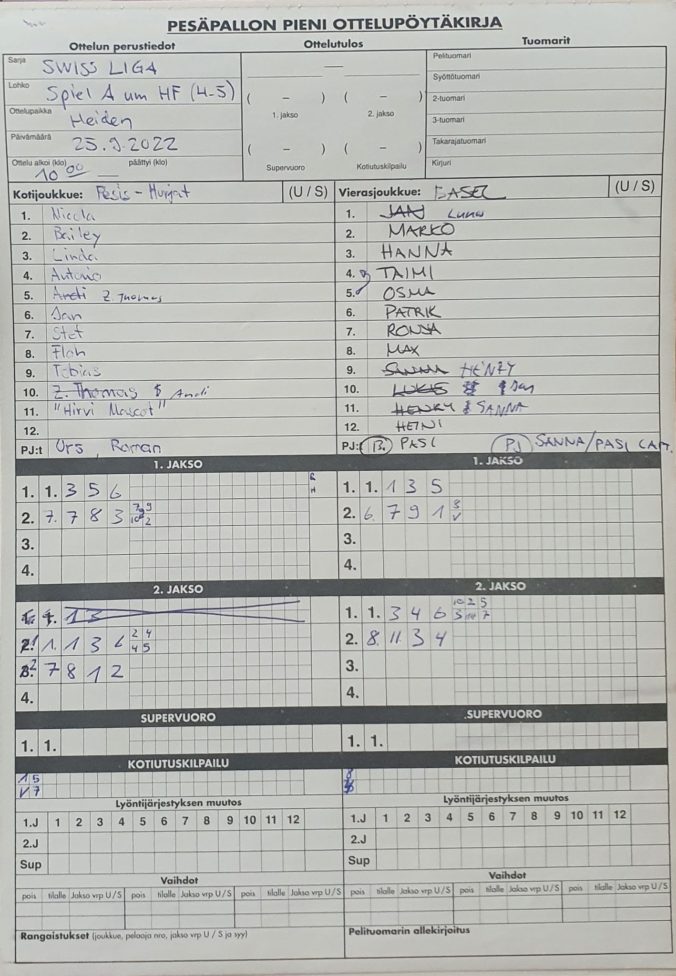 PESÄPALLON PIENI OTTELUPÖYTÄKIRJA
Ottelun perustiedot
Sarja SWISS LIGA
Lohko Spiel A um HF (4-5)
Ottelupaikka Heiden
Päivämäärä 25.9.2022
Ottelu alkoi (klo) päättyi (klo)
10 00 —
Ottelutulos
—
( – ) ( – )
1. jakso 2. jakso
( – ) ( – )
Supervuoro Kotiutuskilpailu
Tuomarit
Pelituomari
Syöttötuomari
2-tuomari
3-tuomari
Takarajatuomari
Kirjuri
Kotijoukkue: Pesis-Hurjat (U / S)
1. Nicola
2. Bailey
3. Linda
4. Antonio
5. Andi Z. Thomas
6. Jan
7. Stef
8. Floh
9. Tobias
10. Z. Thomas $ Andi
11. "Hirvi Mascot"
12.
PJ:t Urs, Roman
Vierasjoukkue: BASEL (U / S)
1. JAN Luna
2. MARKO
3. HANNA
4. TAIMI
5. OSMA
6. PATRIK
7. RONJA
8. MAX
9. SANNA HENRY
10. LUKAS Jan
11. HENRY SANNA
12. HEINI
PJ: PASI PJ SANNA/PASI
1. JAKSO
1. 1. 3 5 6
2. 7. 7 8 3
3.
4.
1. JAKSO
1. 1. 1 3 5
2. 6. 7 9 1 8
3.
4.
2. JAKSO
1. 1. 1 3
2. 1. 1 3 6 2 4
4 5
3. 7 8 1 2
4.
2. JAKSO
1. 1. 3 4 6 10 2 5
2. 8. 11 3 4
3.
4.
SUPERVUORO
1. 1.
SUPERVUORO
1. 1.
KOTIUTUSKILPAILU
1 5
V 7
KOTIUTUSKILPAILU
Lyöntijärjestyksen muutos
1.J 1 2 3 4 5 6 7 8 9 10 11 12
2.J
Sup
Lyöntijärjestyksen muutos
1.J 1 2 3 4 5 6 7 8 9 10 11 12
2.J
Sup
Vaihdot
pois tilalle Jakso vrp U / S pois tilalle Jakso vrp U / S pois tilalle Jakso vrp U / S
Vaihdot
pois tilalle Jakso vrp U / S pois tilalle Jakso vrp U / S pois tilalle Jakso vrp U / S
Rangaistukset (joukkue, pelaaja nro, jakso vrp U / S ja syy)
Pelituomarin allekirjoitus